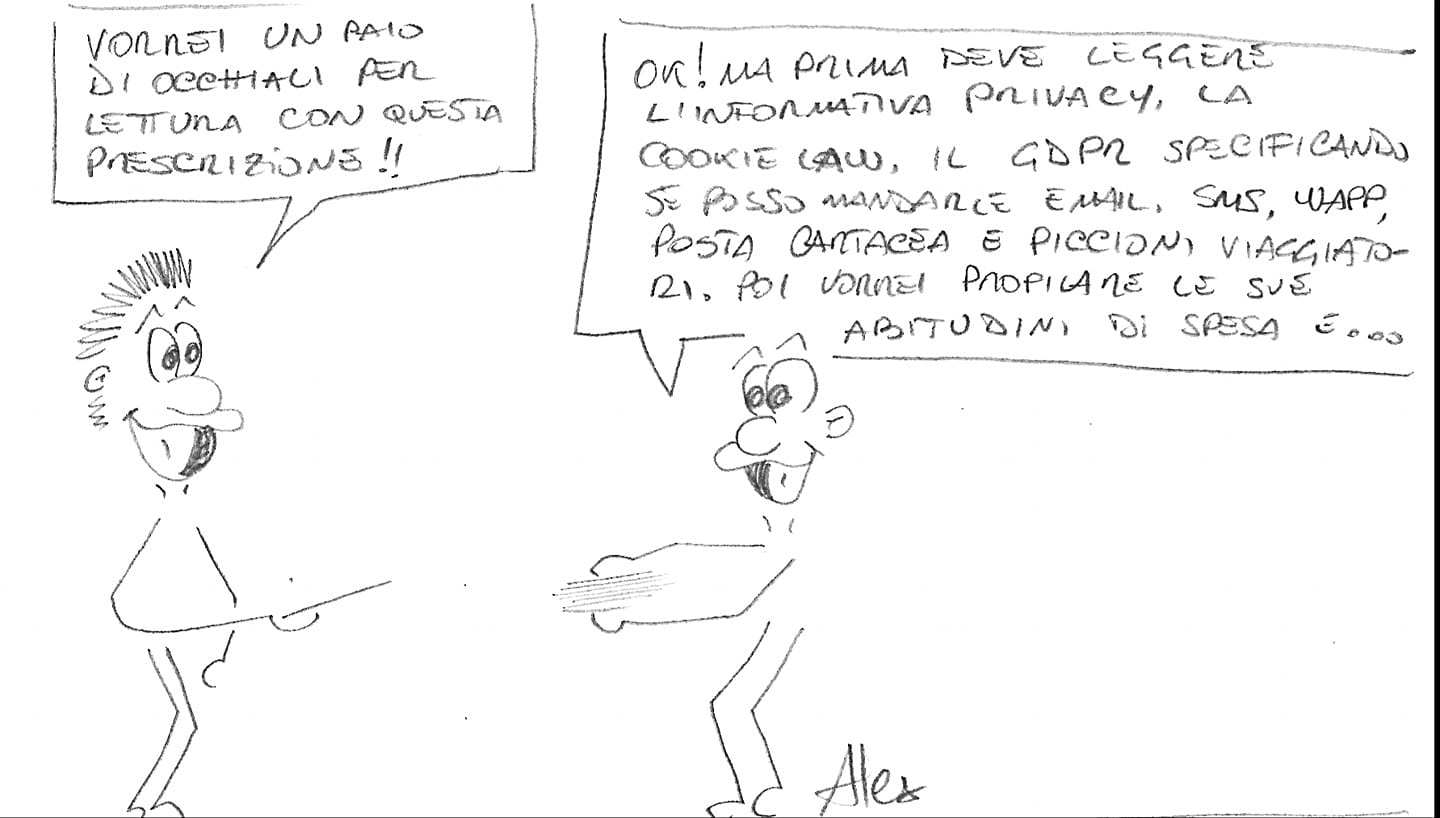 VORREI UN PAIO
DI OCCHIALI PER
LETTURA CON QUESTA
PRESCRIZIONE!!
OK! MA PRIMA DEVE LEGGERE
L'INFORMATIVA PRIVACY, LA
COOKIE LAW, IL GDPR SPECIFICANDO
SE POSSO MANDARLE EMAIL, SMS, WAPP,
POSTA CARTACEA E PICCIONI VIAGGIATO-
RI. POI VORREI PROFILARE LE SUE
ABITUDINI DI SPESA E....
Alex